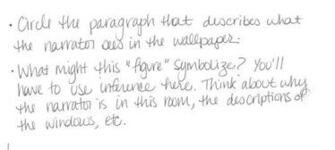 • Circle the paragraph that describes what
the narrator sees in the wallpaper.
• What might this "figure" symbolize? You'll
have to use inference here. Think about why
the narrator is in this room, the descriptions of
the windows, etc.